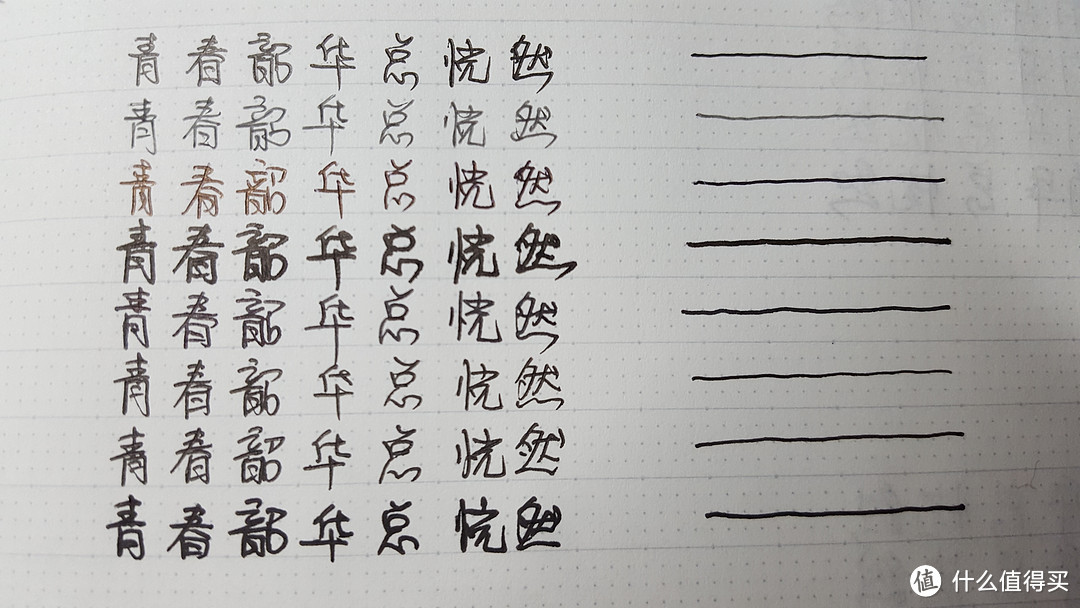 青春韶华总恍然
青春韶华总恍然
青春韶华总恍然
青春韶华总恍然
青春韶华总恍然
青春韶华总恍然
青春韶华总恍然
青春韶华总恍然
值 什么值得买